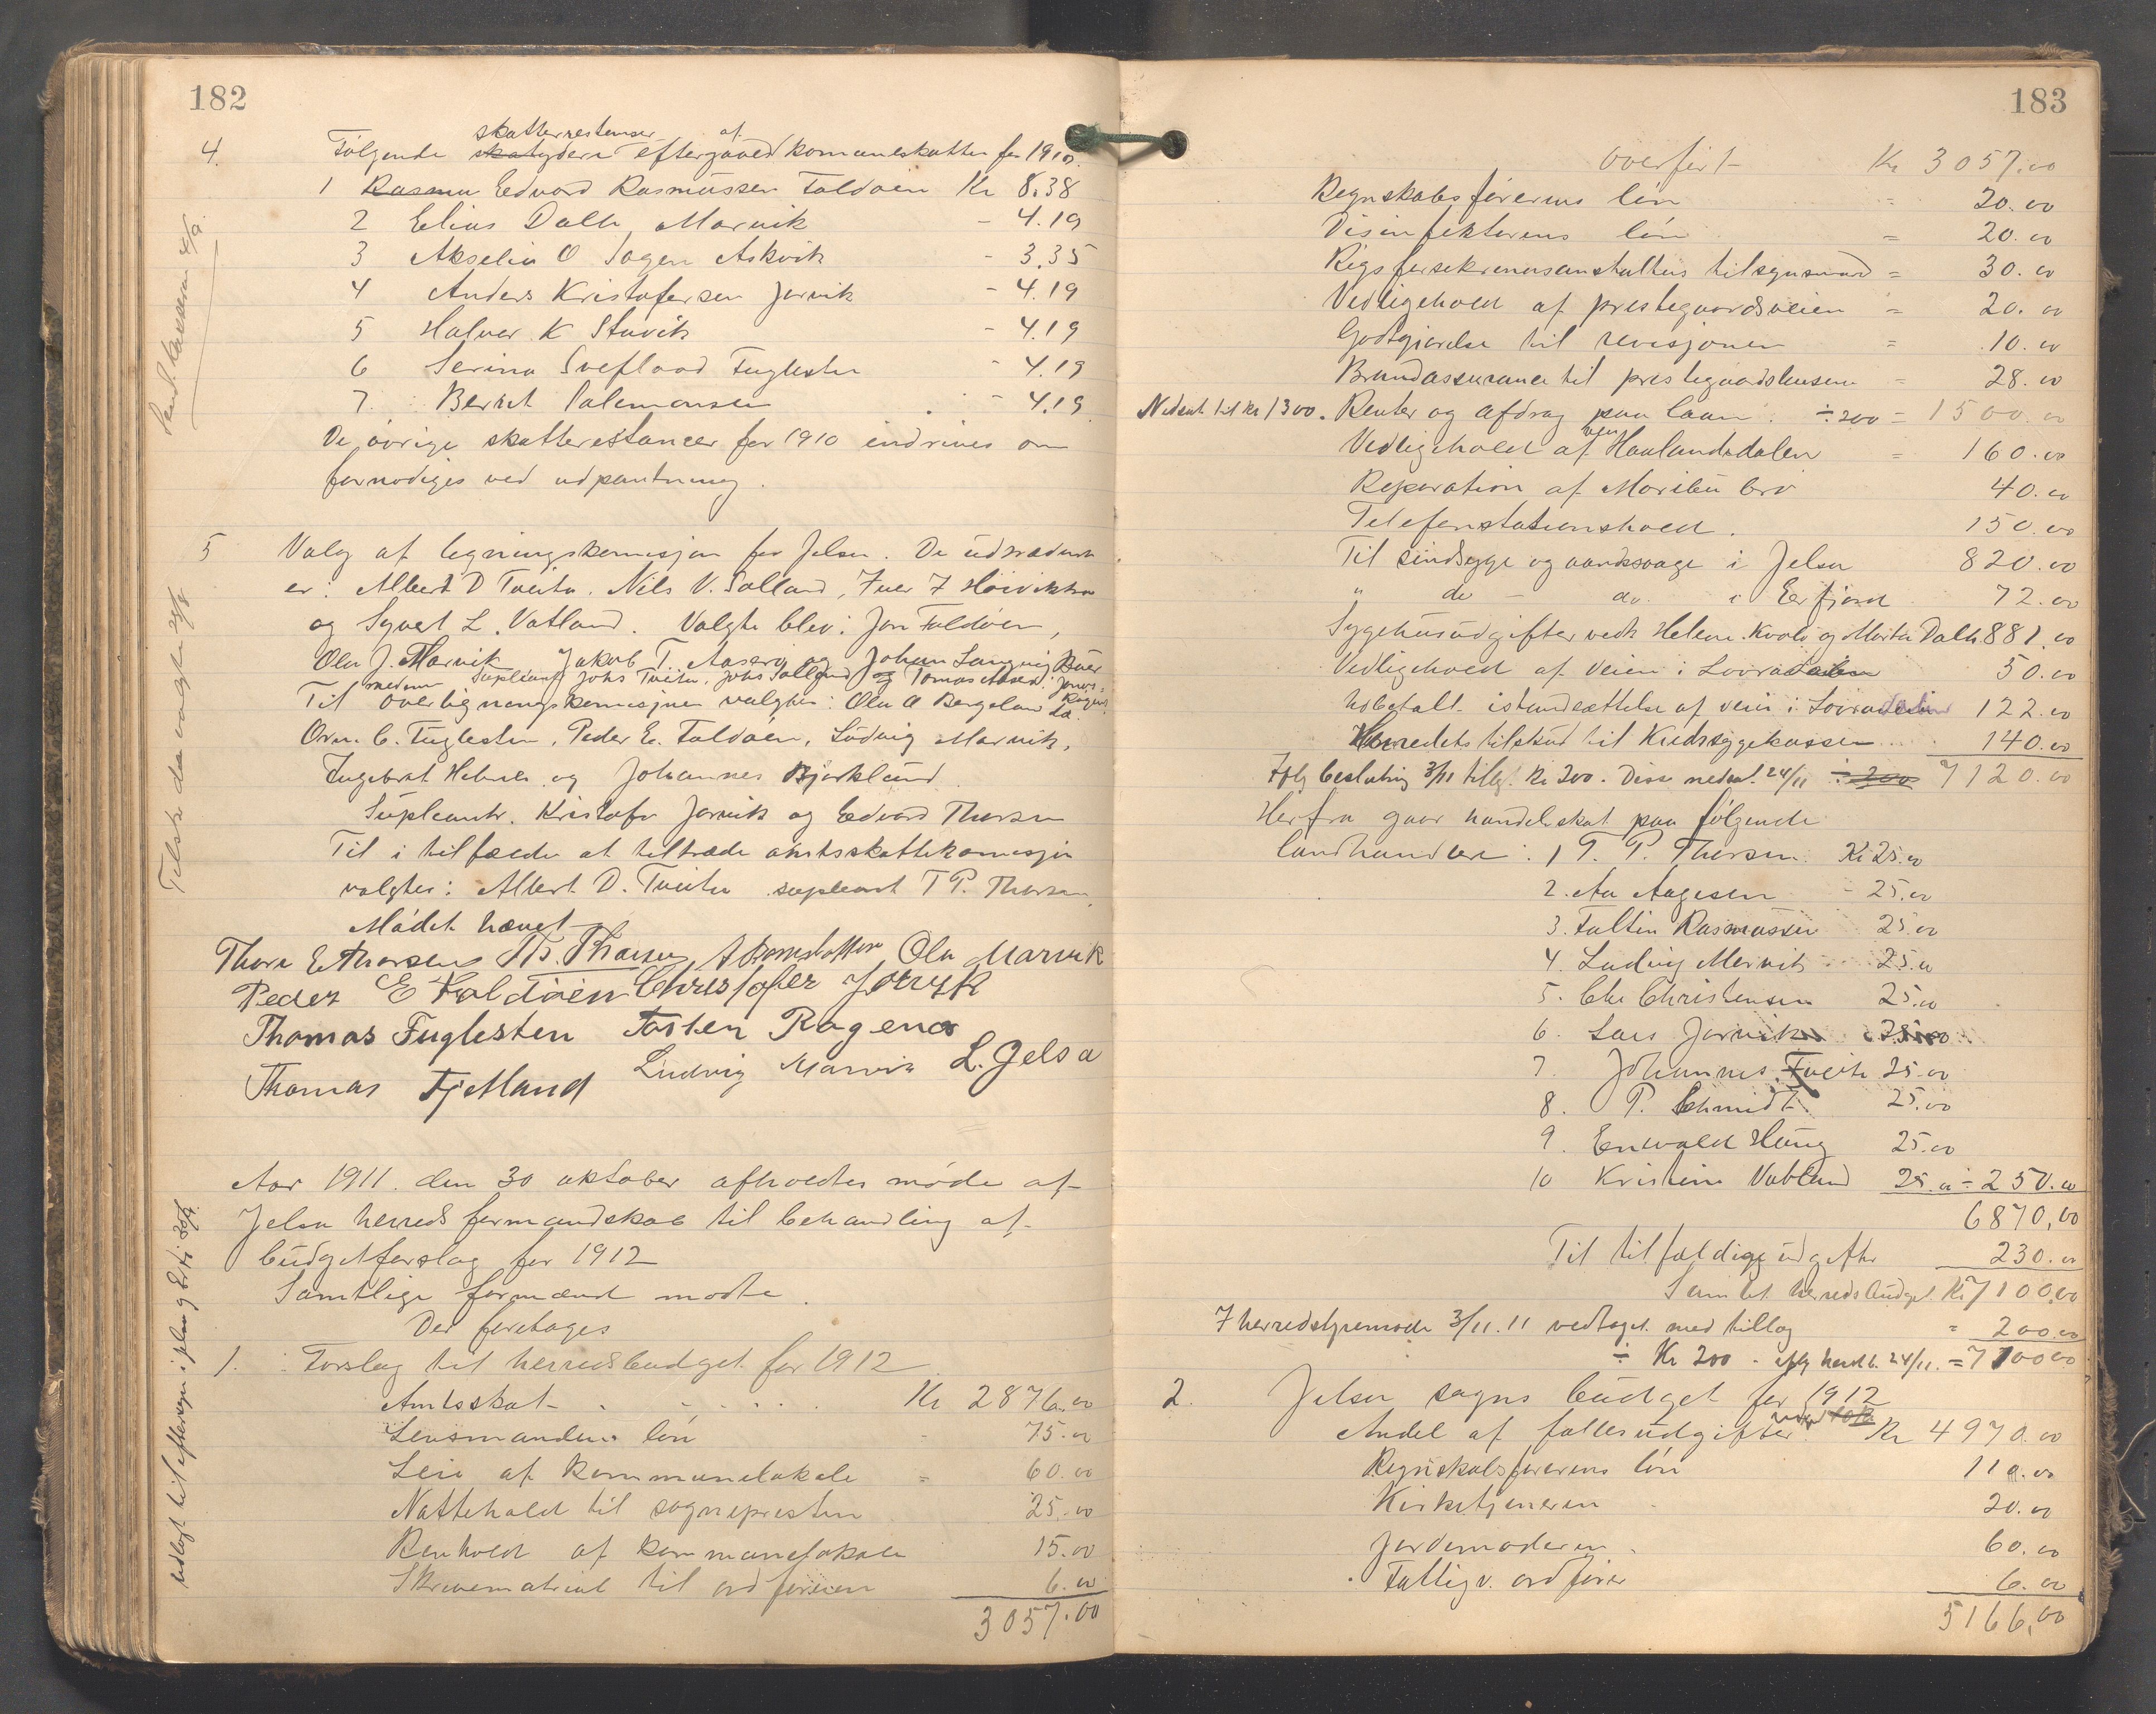 182
4. Følgende skatterestenser af
skatydere eftergaaed komuneskatten for 1910.
1 Rasmu Edvard Rasmussen Foldøen Kr 8.38
2 Elias Dalh Marvik - 4.19
3 Akselia O Sagen Askvik - 3.35
4 Anders Kristofersen Jørvik - 4.19
5 Halver K Stuvik - 4.19
6 Serina Fuglesten - 4.19
7. Berret Salemonsen - 4.19
De øvrige skatterestancer for 1910 indrives om
fornødiges ved udpantning.
5 Valg af ligningskomisjon for Jelsa. De udtrædende
er: Albert D Tveita. Nils V. Salland, Iver
og Syvert L. Vatland. Valgte blev: Jon Foldøen,
Ola J. Marvik Jakob T. Aasery og Johan Langvig Bøer
Til overligningskomisjonen valgtes: Ola A Bergeland
Orm. C. Fuglesten, Peder E. Foldøen, Ludvig Marvik,
Ingebret Helnes og Johannes Bjørklund.
Supleanter. Kristofer Jørvik og Edvard Thorsen
Til i tilfælde at tiltræde amtsskattekomisjon
valgtes: Albert D. Tveita supleant T P. Thorsen.
Mødet hævet
Thore E Thorsen Ths. Thorsen Ola Marvik
Peder E Foldøen Christofer Jørvik
Thomas Fuglesten Tosten Ragena
Thomas Fjetland Ludvig Marvik L. Jelsa
Aar 1911. den 30 oktober afholdtes møde af
Jelsa herreds formandskab til behandling af
budgetforslag for 1912
Samtlige formænd mødte.
Der foretages
1. Forslag til herredsbudget for 1912
Amtsskat Kr 2876.00
Lensmandens løn - 75.00
Leie af kommunelokale = 60.00
Nattehold til sognepresten 25.00
Renhold af kommunelokale 15.00
Skrivematrial til ordføreren 6.00
3057.00
udlagt til eftersyn i Jelsa
183
overført Kr 3057.00
Regnskabsførerens løn = 20.00
Disinfektørens løn = 20.00
Rigsforsikrensanstaltens tilsynsmand = 30.00
Vedligehold af prestegaardsveien = 20.00
Godtgjørelse til revisjonen = 10.00
Brandassurance til prestegaardshusene = 28.00
Nedsat til Kr 1300. Renter og afdrag paa laan ÷200 = 1500.00
Vedligehold af veien Haalandsdalen = 160.00
Reparation af Maribu bro 40.00
Telefonstationshold. 150.00
Til sindsyge og aandssvage i Jelsa 820.00
" do - do. i Erfjord 72.00
Sygehusudgifter vedk Helene Kvale og Marta Dalh 881.00
Vedligehold af veien i Lovradalen 50.00
Ubetalt istandsættelse af veien i Lovradalen 122.00
Herredets tilskud til Kredssygekassen 140.00
Iflg beslutning 3/11 tillagt Kr 200. Disse nedsat 24/11 ÷ 200 7120.00
Herfra gaar handelsskat paa følgende
landhandlere: 1 T. P. Thorsen Kr 25.00
2. Aa Aagesen - 25.00
3. Faltin Rasmussen 25.00
4. Ludvig Marvik 25.00
5. Chr Christensen 25.00
6. Lars Jørvik 25.00
7. Johannes Tveita 25.00
8. P. Schmidt 25.00
9. Enevald Haug 25.00
10 Kristine Vatland 25.00 ÷ 250.00
6870,00
Til tilfældige udgifter 230.00
Samlet herredsbudget Kr 7100,00
I herredstyremøde 3/11.11 vedtaget med tillæg = 200.00
÷ Kr 200 - iflg herredsb. 24/11. = 7100.00
2. Jelsa sogns budget for 1912
Andel af fællesudgifter Kr 4970.00
Regnskabsførerens løn 110.00
Kirketjeneren 20.00
Jordemoderen 60.00
Fattigv. ordfører 6.00
5166,00